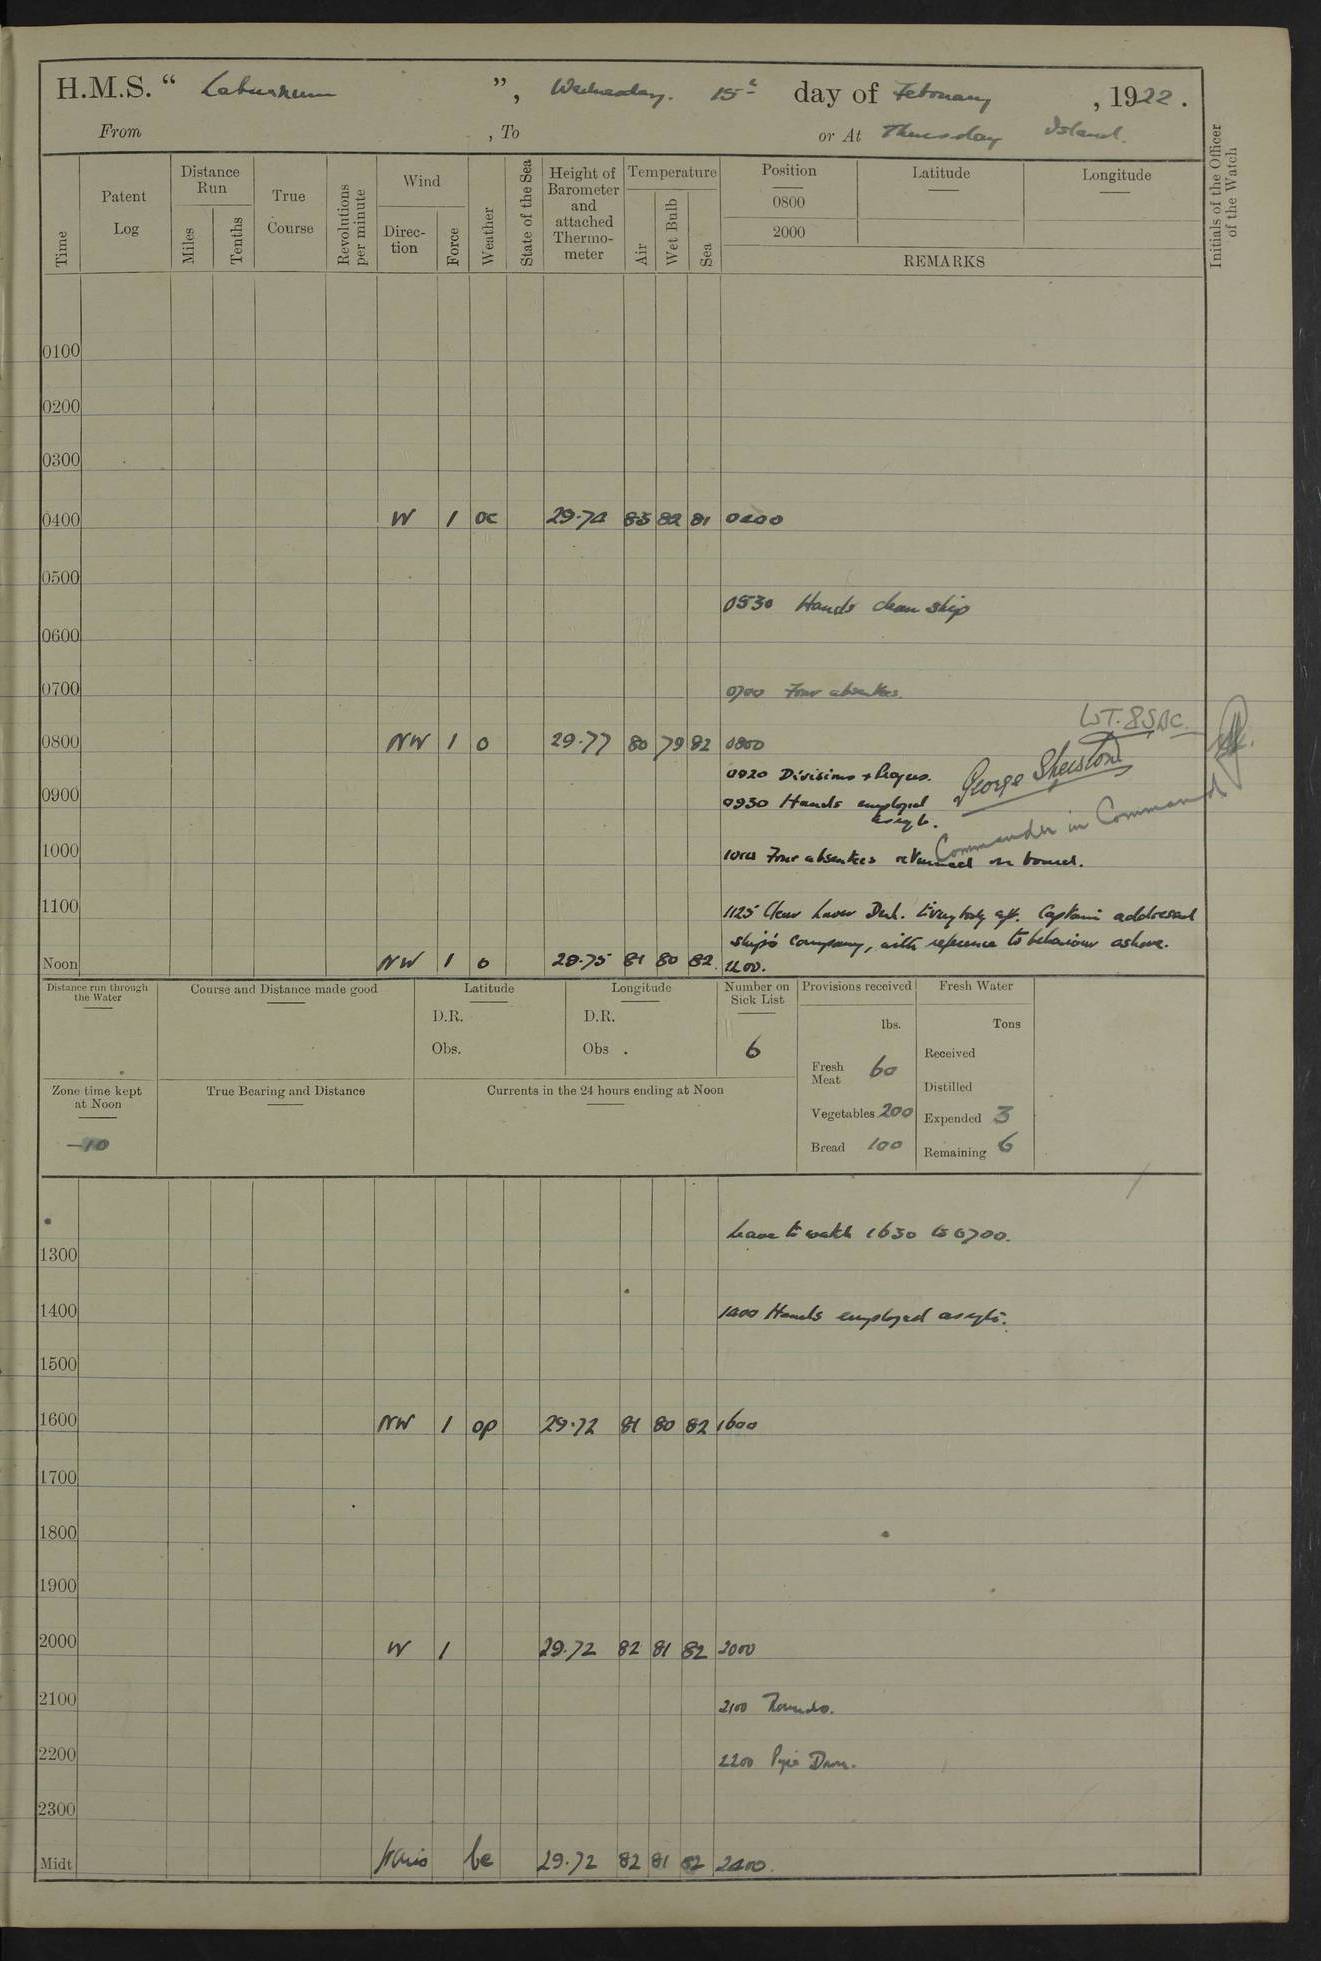 H.M.S. “ Laburnum ”, Wednesday. 15th day of February , 1922.
From , To or At Thursday Island.
Time
Patent Log
Distance Run
Miles
Tenths
True Course
Revolutions per minute
Wind
Direction
Force
Weather
State of the Sea
Height of Barometer and attached Thermometer
Temperature
Air
Wet Bulb
Sea
Position
0800
2000
Latitude
Longitude
REMARKS
Initials of the Officer of the Watch
0100
0200
0300
0400 W 1 oc 29.74 83 82 81 0400
0500
0530 Hands clean ship
0600
0700 0700 Four absentees.
WT. 85DC
0800 NW 1 o 29.77 80 79 82 0800
0920 Divisions & Prayers.
George Sherston
0900 0930 Hands employed
asreqte.
Commander in Command
1000 Four absentees returned on board.
1100 1125 Clear Lower Deck. Everybody aft. Captain addressed
ship's Company, with reference to behaviour ashore.
Noon NW 1 o 29.75 81 80 82 1200.
Distance run through the Water
Course and Distance made good
Latitude
D.R.
Obs.
Longitude
D.R.
Obs.
Number on Sick List
6
Provisions received
lbs.
Fresh Meat 60
Vegetables 200
Bread 100
Fresh Water
Tons
Received
Distilled
Expended 3
Remaining 6
Zone time kept at Noon
—10
True Bearing and Distance
Currents in the 24 hours ending at Noon
Leave to watch 1630 to 0700.
1300
1400 1400 Hands employed asreqte.
1500
1600 NW 1 op 29.72 81 80 82 1600
1700
1800
1900
2000 W 1 29.72 82 81 82 2000
2100 2100 Rounds.
2200 2200 Pipe Down.
2300
Midt bc 29.72 82 81 82 2400.